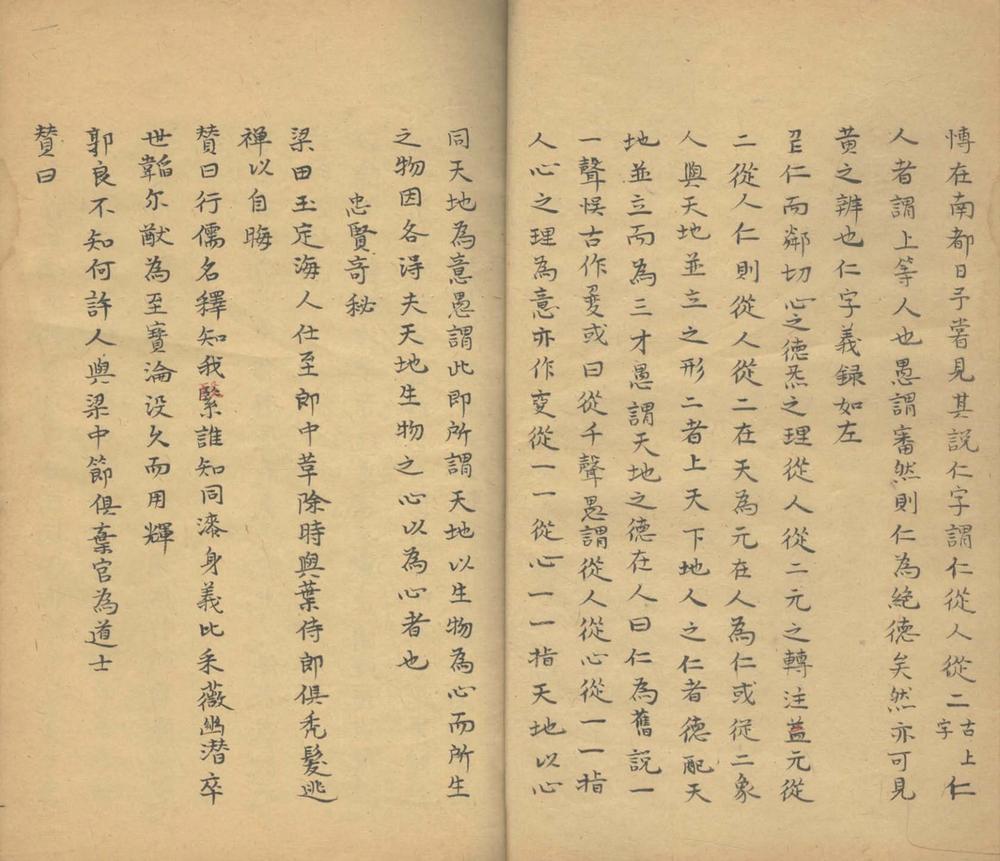 愽在南都日予嘗見其説仁字謂仁從人從二古上字仁
人者謂上等人也愚謂審然則仁為絶德矣然亦可見
黄之辨也仁字義録如左
仁而鄰切心之德炁之理從人從二元之轉注盖元從
二從人仁則從人從二在天為元在人為仁或從二象
人與天地並立之形二者上天下地人之仁者德配天
地並立而為三才愚謂天地之德在人曰仁為舊説一
一聲悮古作㤅或曰從千聲愚謂從人從心從一一指
人心之理為意亦作從一一從心一一指天地以心
同天地為意愚謂此即所謂天地以生物為心而所生
之物因各淂夫天地生物之心以為心者也
忠賢竒秘
梁田玉定海人仕至郎中革除時與葉侍郎俱禿髪逃
禅以自晦
賛曰行儒名釋知我繄誰知同漆身義比采薇幽潜卒
世韜尔猷為至寳淪没久而用輝
郭良不知何許人與梁中節俱棄官為道士
賛曰